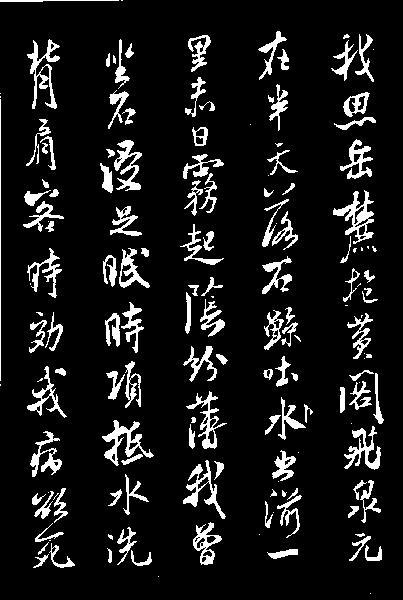 我思岳麓抱黄閣飛泉元
在半天落石鯨吐水出湔一
里赤日霧起陰紛薄我曾
坐石浸足眠時項抵水洗
背肩客時効我病欲死